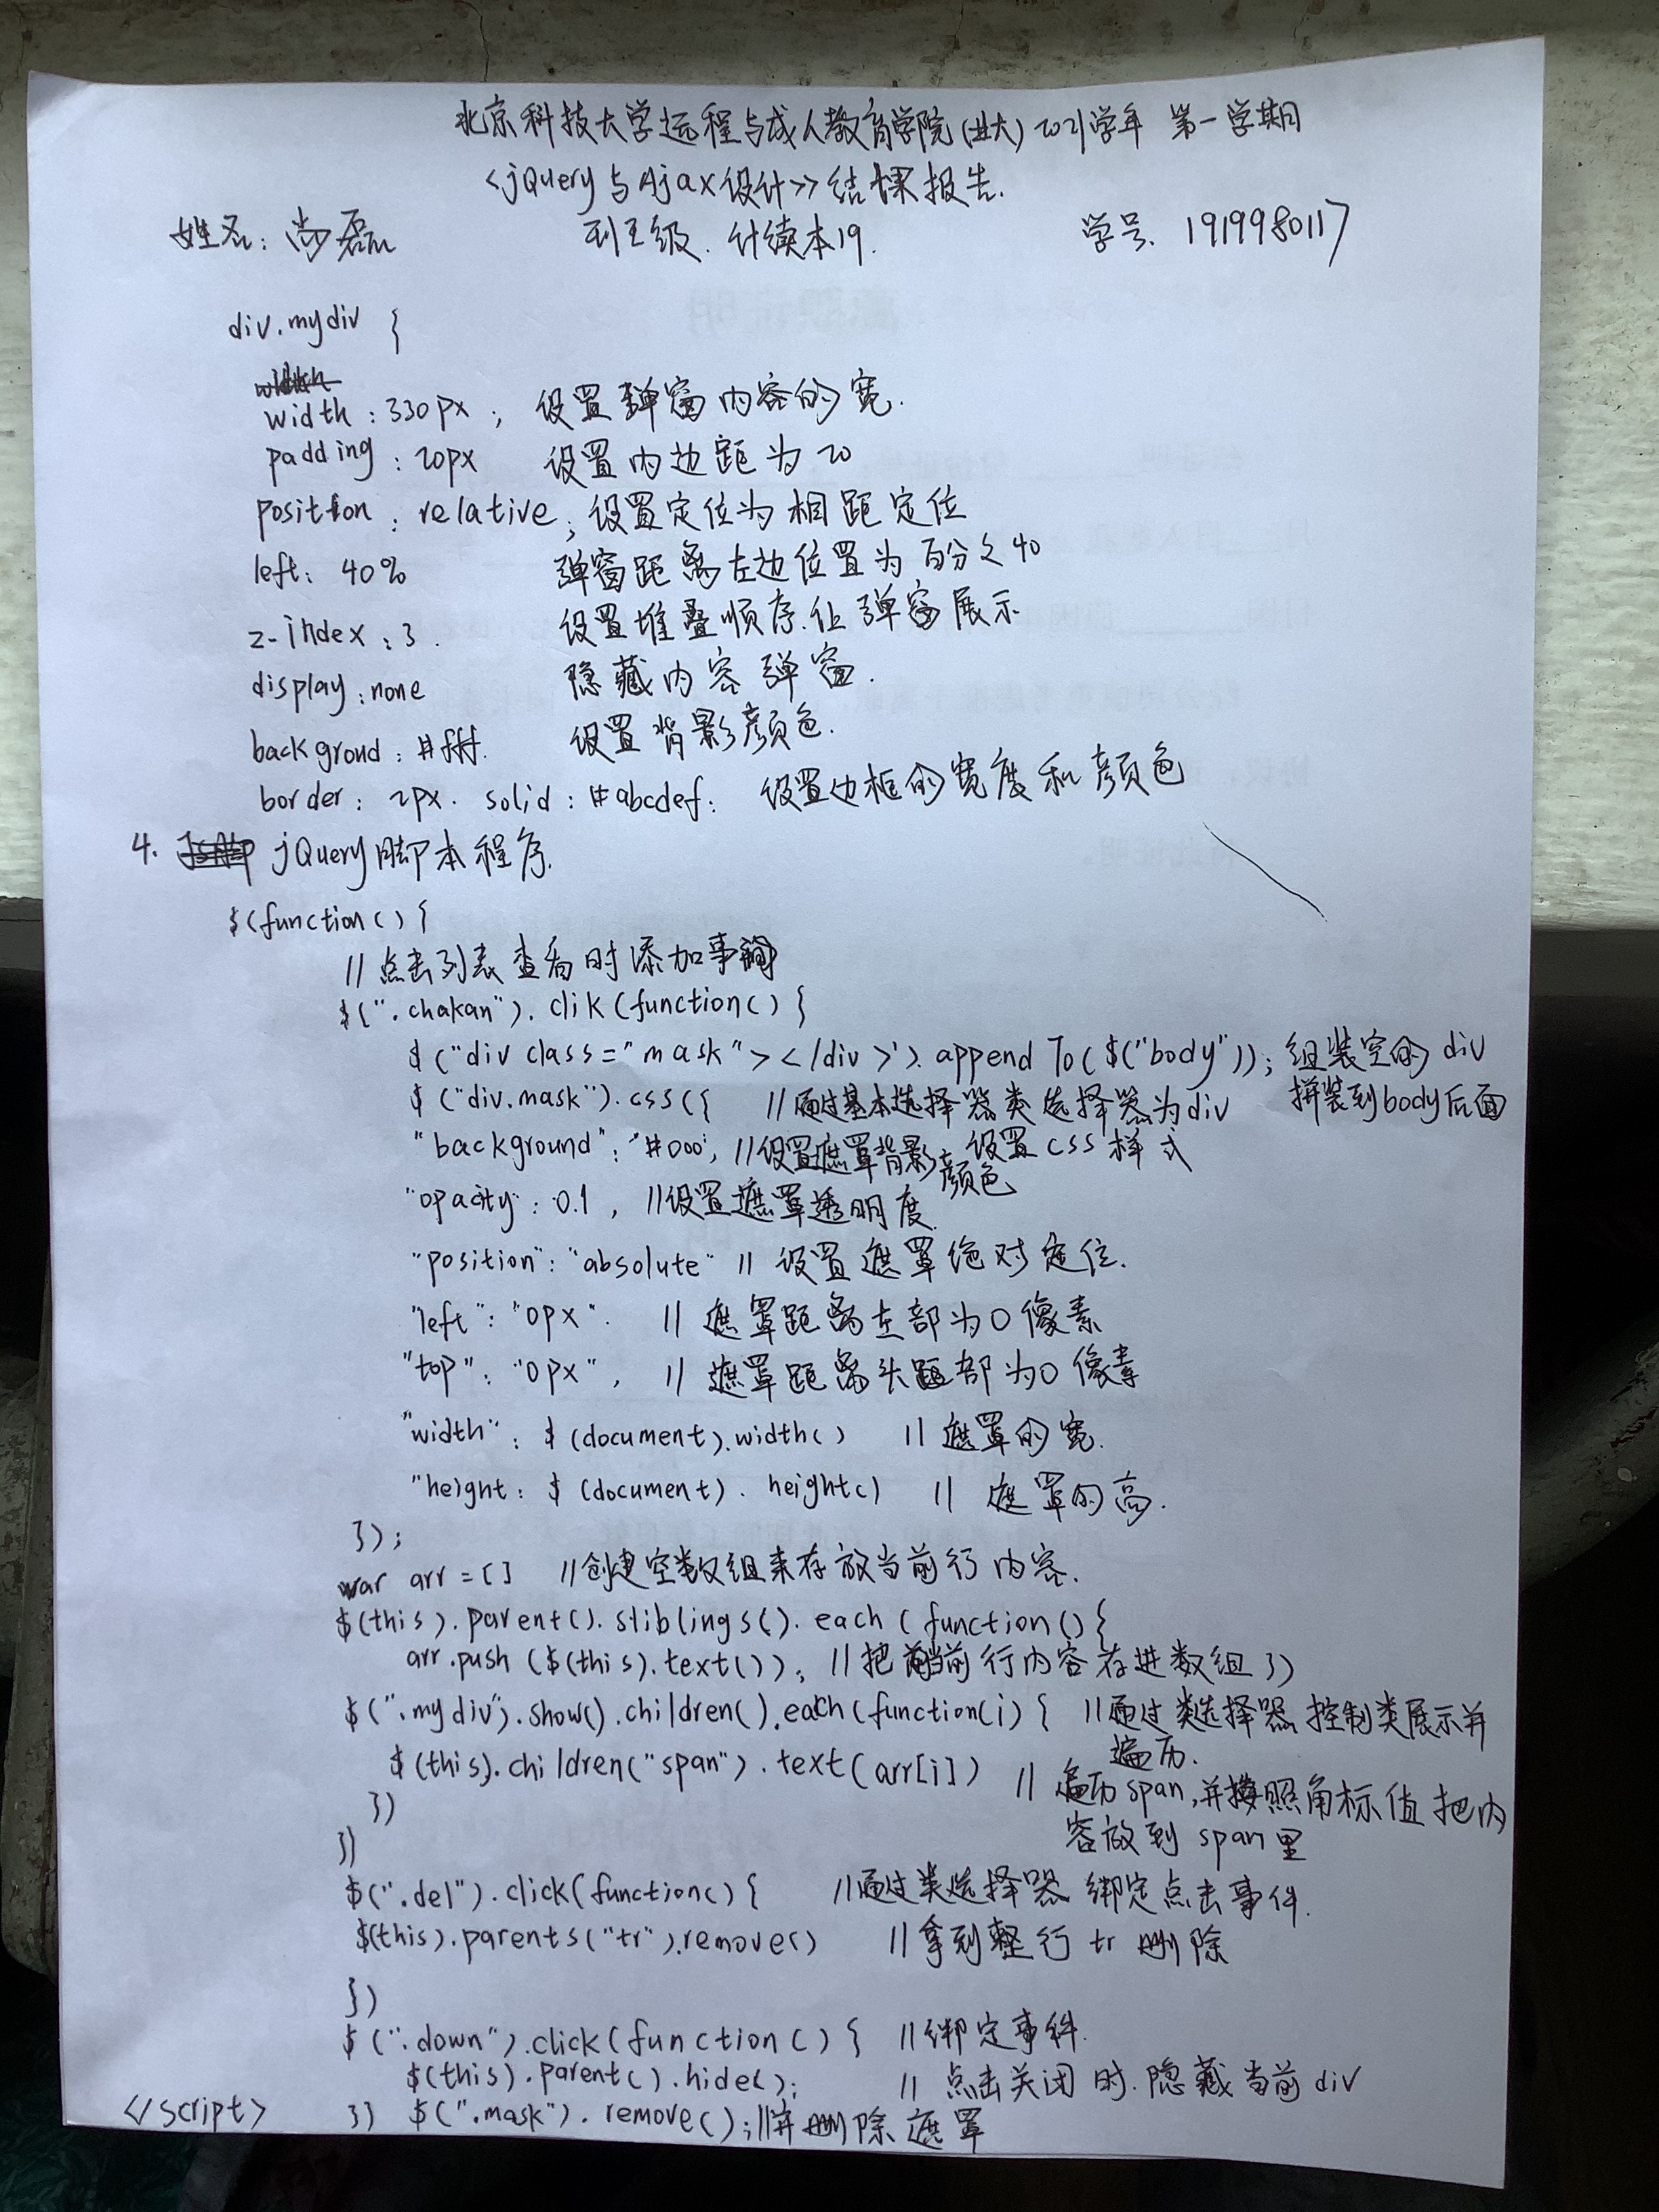 北京科技大学远程与成人教育学院(业大) 2021学年 第一学期
<jQuery与Ajax设计>>结课报告.
姓名: 尚磊 班级. 计续本19. 学号. 1919980117
div.mydiv {
width : 330px ; 设置弹窗内容的宽.
padding : 20px 设置内边距为20
position : relative; 设置定位为相距定位
left: 40% 弹窗距离左边位置为百分之40
z-index : 3. 设置堆叠顺序.让弹窗展示
display : none 隐藏内容弹窗.
backgroud : #fff. 设置背影颜色.
border : 2px. solid : #abcdef: 设置边框的宽度和颜色
4. jQuery脚本程序.
$(function() {
//点击列表查看时添加事
$(".chakan"). clik (function() {
$ ("div class="mask"></div>"). append To( $("body")); 组装空的div
拼装到body后面
$ ("div.mask").css({ //通过基本选择器类选择器为div
设置css样式
"background": "#000", //设置遮罩背影颜色
"opacity": 0.1, //设置遮罩透明度.
"position": "absolute" // 设置遮罩绝对定位.
"left": "0px". // 遮罩距离左部为0像素
"top": "0px", // 遮罩距离头部为0像素
"width": $ (document).width() // 遮罩的宽.
"height: $ (document). height() // 遮罩的高.
});
var arr = [] //创建空数组来存放当前行内容.
$(this).parent().sliblings().each (function() {
arr.push ($(this).text()); //把当前行内容存进数组 })
$(".mydiv").show().children().each(function(i) { //通过类选择器 控制类展示并
遍历.
$(this).children("span").text(arr[i]) // 遍历span,并按照角标值把内
容放到 span里
})
})
$(".del").click(function() { //通过类选择器 绑定点击事件.
$(this).parents("tr").remove() //拿到整行tr删除
})
$ (".down").click(function() { //绑定事件.
$(this).parent().hide(); // 点击关闭时.隐藏当前div
</script> }) $(".mask").remove(); //并删除遮罩